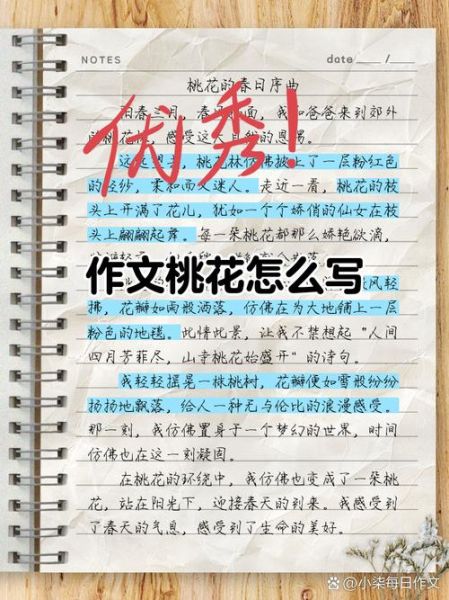 NOTES
date __/__
桃花的春日序曲
阳春三月，春面，我和爸爸来到郊外
的桃花，感受这自的恩赐。
优秀！
远远望去，桃花林仿佛披上了一层粉红色
的轻纱，柔和而又迷人。走近一看，桃花的枝
头上开满了花儿，犹如一个个娇俏的仙女在枝
头上翩翩起舞。每一朵桃花都那么娇艳欲滴，
作文桃花怎么写
风轻
拂，花瓣如雨般洒落，仿佛在为大地铺上一层
粉色的地毯。此情此景，让我不禁想起“人间
四月芳菲尽，山寺桃花始盛开”的诗句。
我轻轻摇晃一株桃树，花瓣便如雪般纷纷
扬扬地飘落，给人一种无与伦比的浪漫感受。
那一刻，我仿佛置身于一个梦幻的世界，时间
仿佛也在这一刻凝固。
在桃花的环绕中，我仿佛也变成了一朵桃
花，站在阳光下，迎接春天的到来。我感受到
了春天的气息，感受到了生命的美好。
小柒每日作文